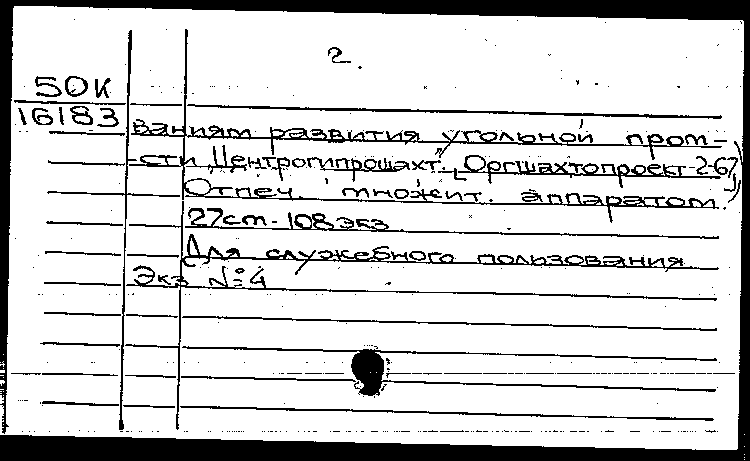 2.
50К
16183
ваниям развития угольной пром-
-сти „Центрогипрошахт". Оргшахтопроект-2-67)
Отпеч. множит. аппаратом.)
27см-108 экз.
Для служебного пользования
Экз №4